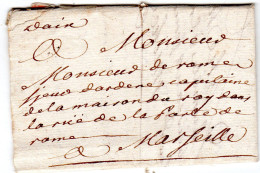 Dain
A Monsieur
Monsieur de romer
d'ardene capitaine
de la maison du roy dans
la rüe de la Porte de
rome
a Marseille